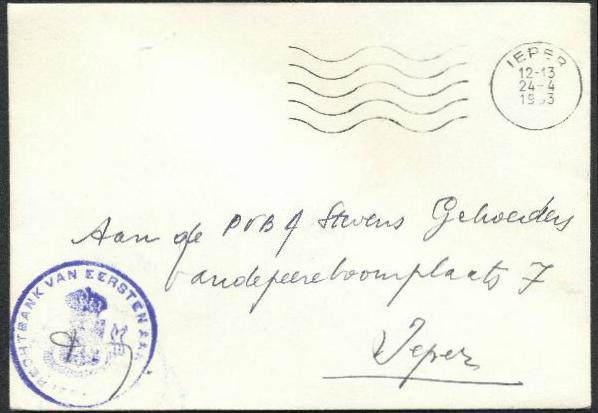 IEPER
12-13
24-4
Aan de PVBA Stevens Gehoeders
Vandepeereboomplaats 7
Ieper
RECHTBANK VAN EERSTEN AAN